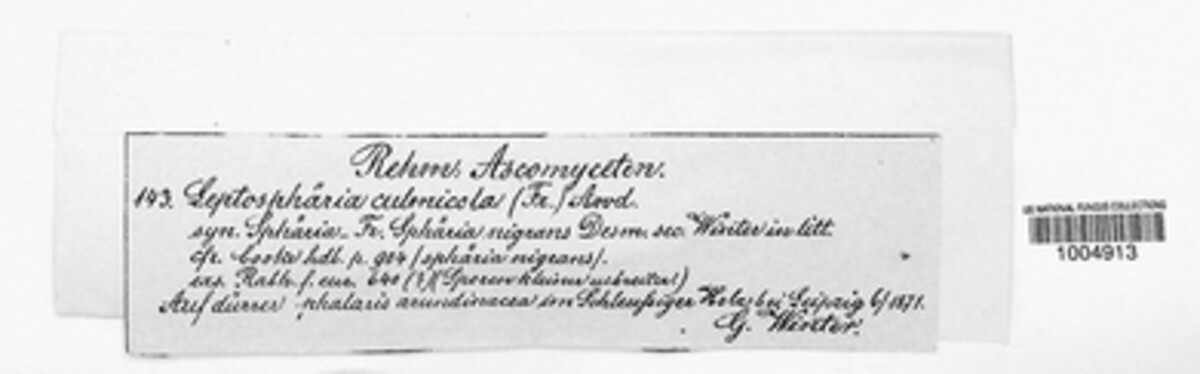 Rehm, Ascomyceten.
143. Leptosphäria culmicola (Fr.) Awd.
syn. Sphäria Fr. Sphäria nigrans Desm. sec. Winter in litt.
cfr. Cooke hdb. p. 904 (sphäria nigrans).
exs. Rabh. f. eur. 640 (?)(Sporen kleiner u. breiter!)
Auf dürrer phalaris arundinacea im Schleußiger Holz bei Leipzig 6/1871.
G. Winter.
US NATIONAL FUNGUS COLLECTIONS
1004913